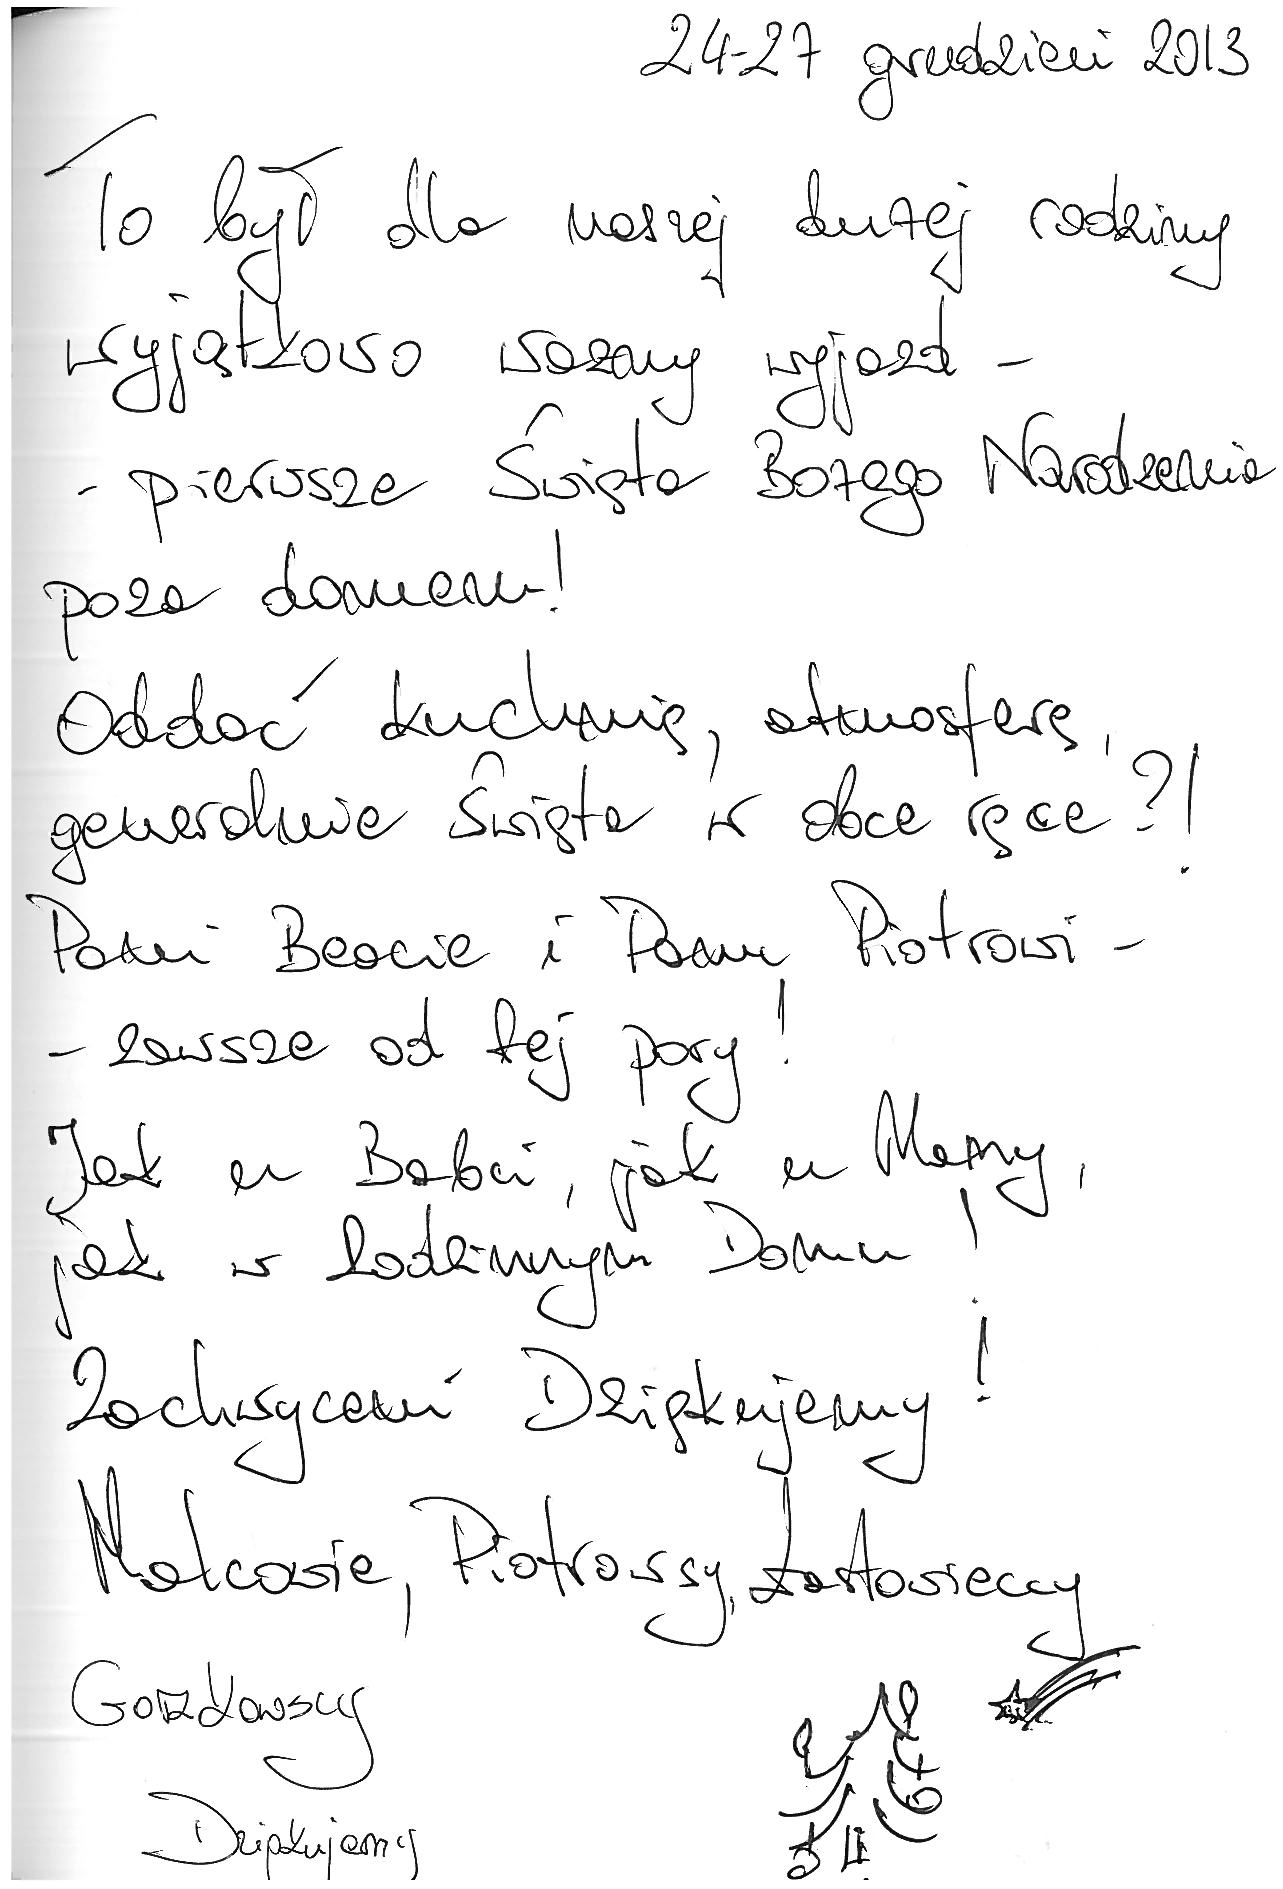 24-27 grudzień 2013
To był dla naszej dużej rodziny
wyjątkowo ważny wyjazd -
- pierwsze Święta Bożego Narodzenia
poza domem!
Oddać kuchnię, atmosferę,
generalnie Święta w obce ręce?!
Pani Beacie i Panu Piotrowi -
- zawsze od tej pory!
Jak u Babci, jak u Mamy,
jak w Rodzinnym Domu!
Zachwyceni Dziękujemy!
Malcowie, Piotrowscy,
Gozdkowscy
Dziękujemy